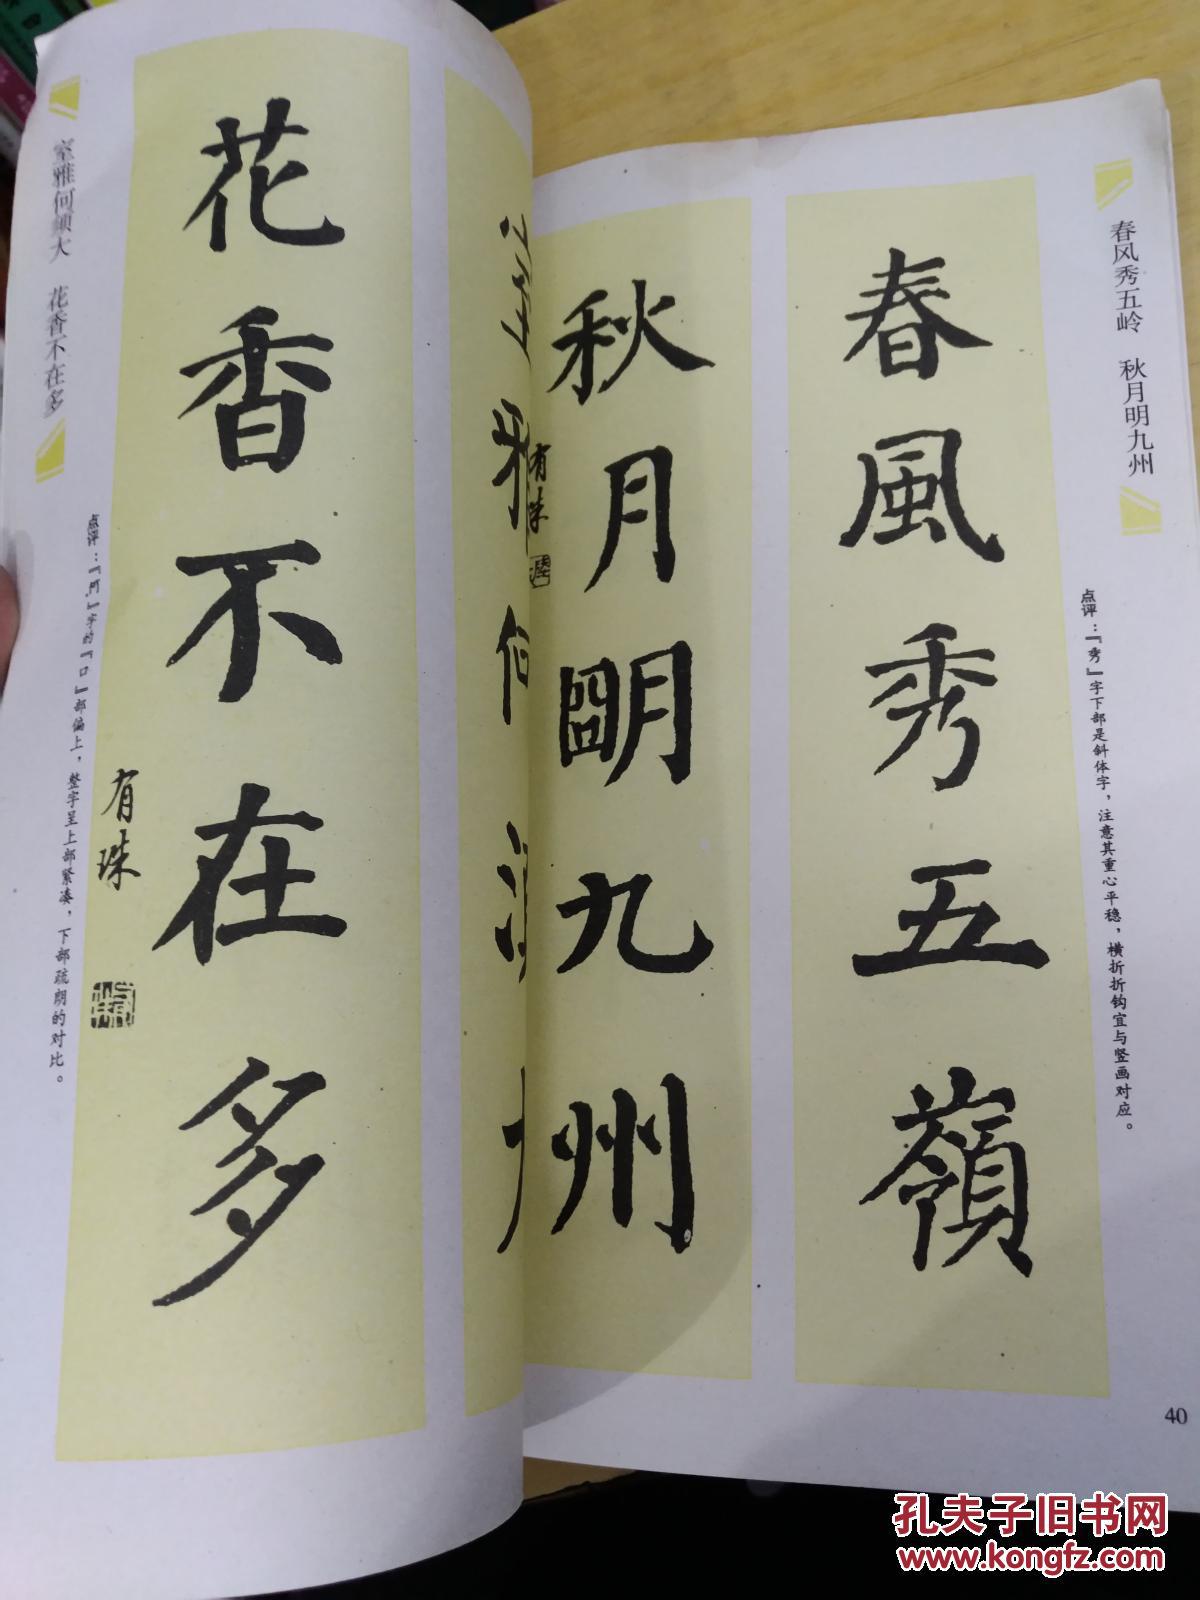 春风秀五岭 秋月明九州
点评：『秀』字下部是斜体字，注意其重心平稳，横折折钩宜与竖画对应。
春風秀五嶺
秋月朙九州
有珠
40
花香不在多
有珠
室雅何须大 花香不在多
点评：『何』字的『口』部偏上，整字呈上部紧凑，下部疏朗的对比。
孔夫子旧书网
www.kongfz.com